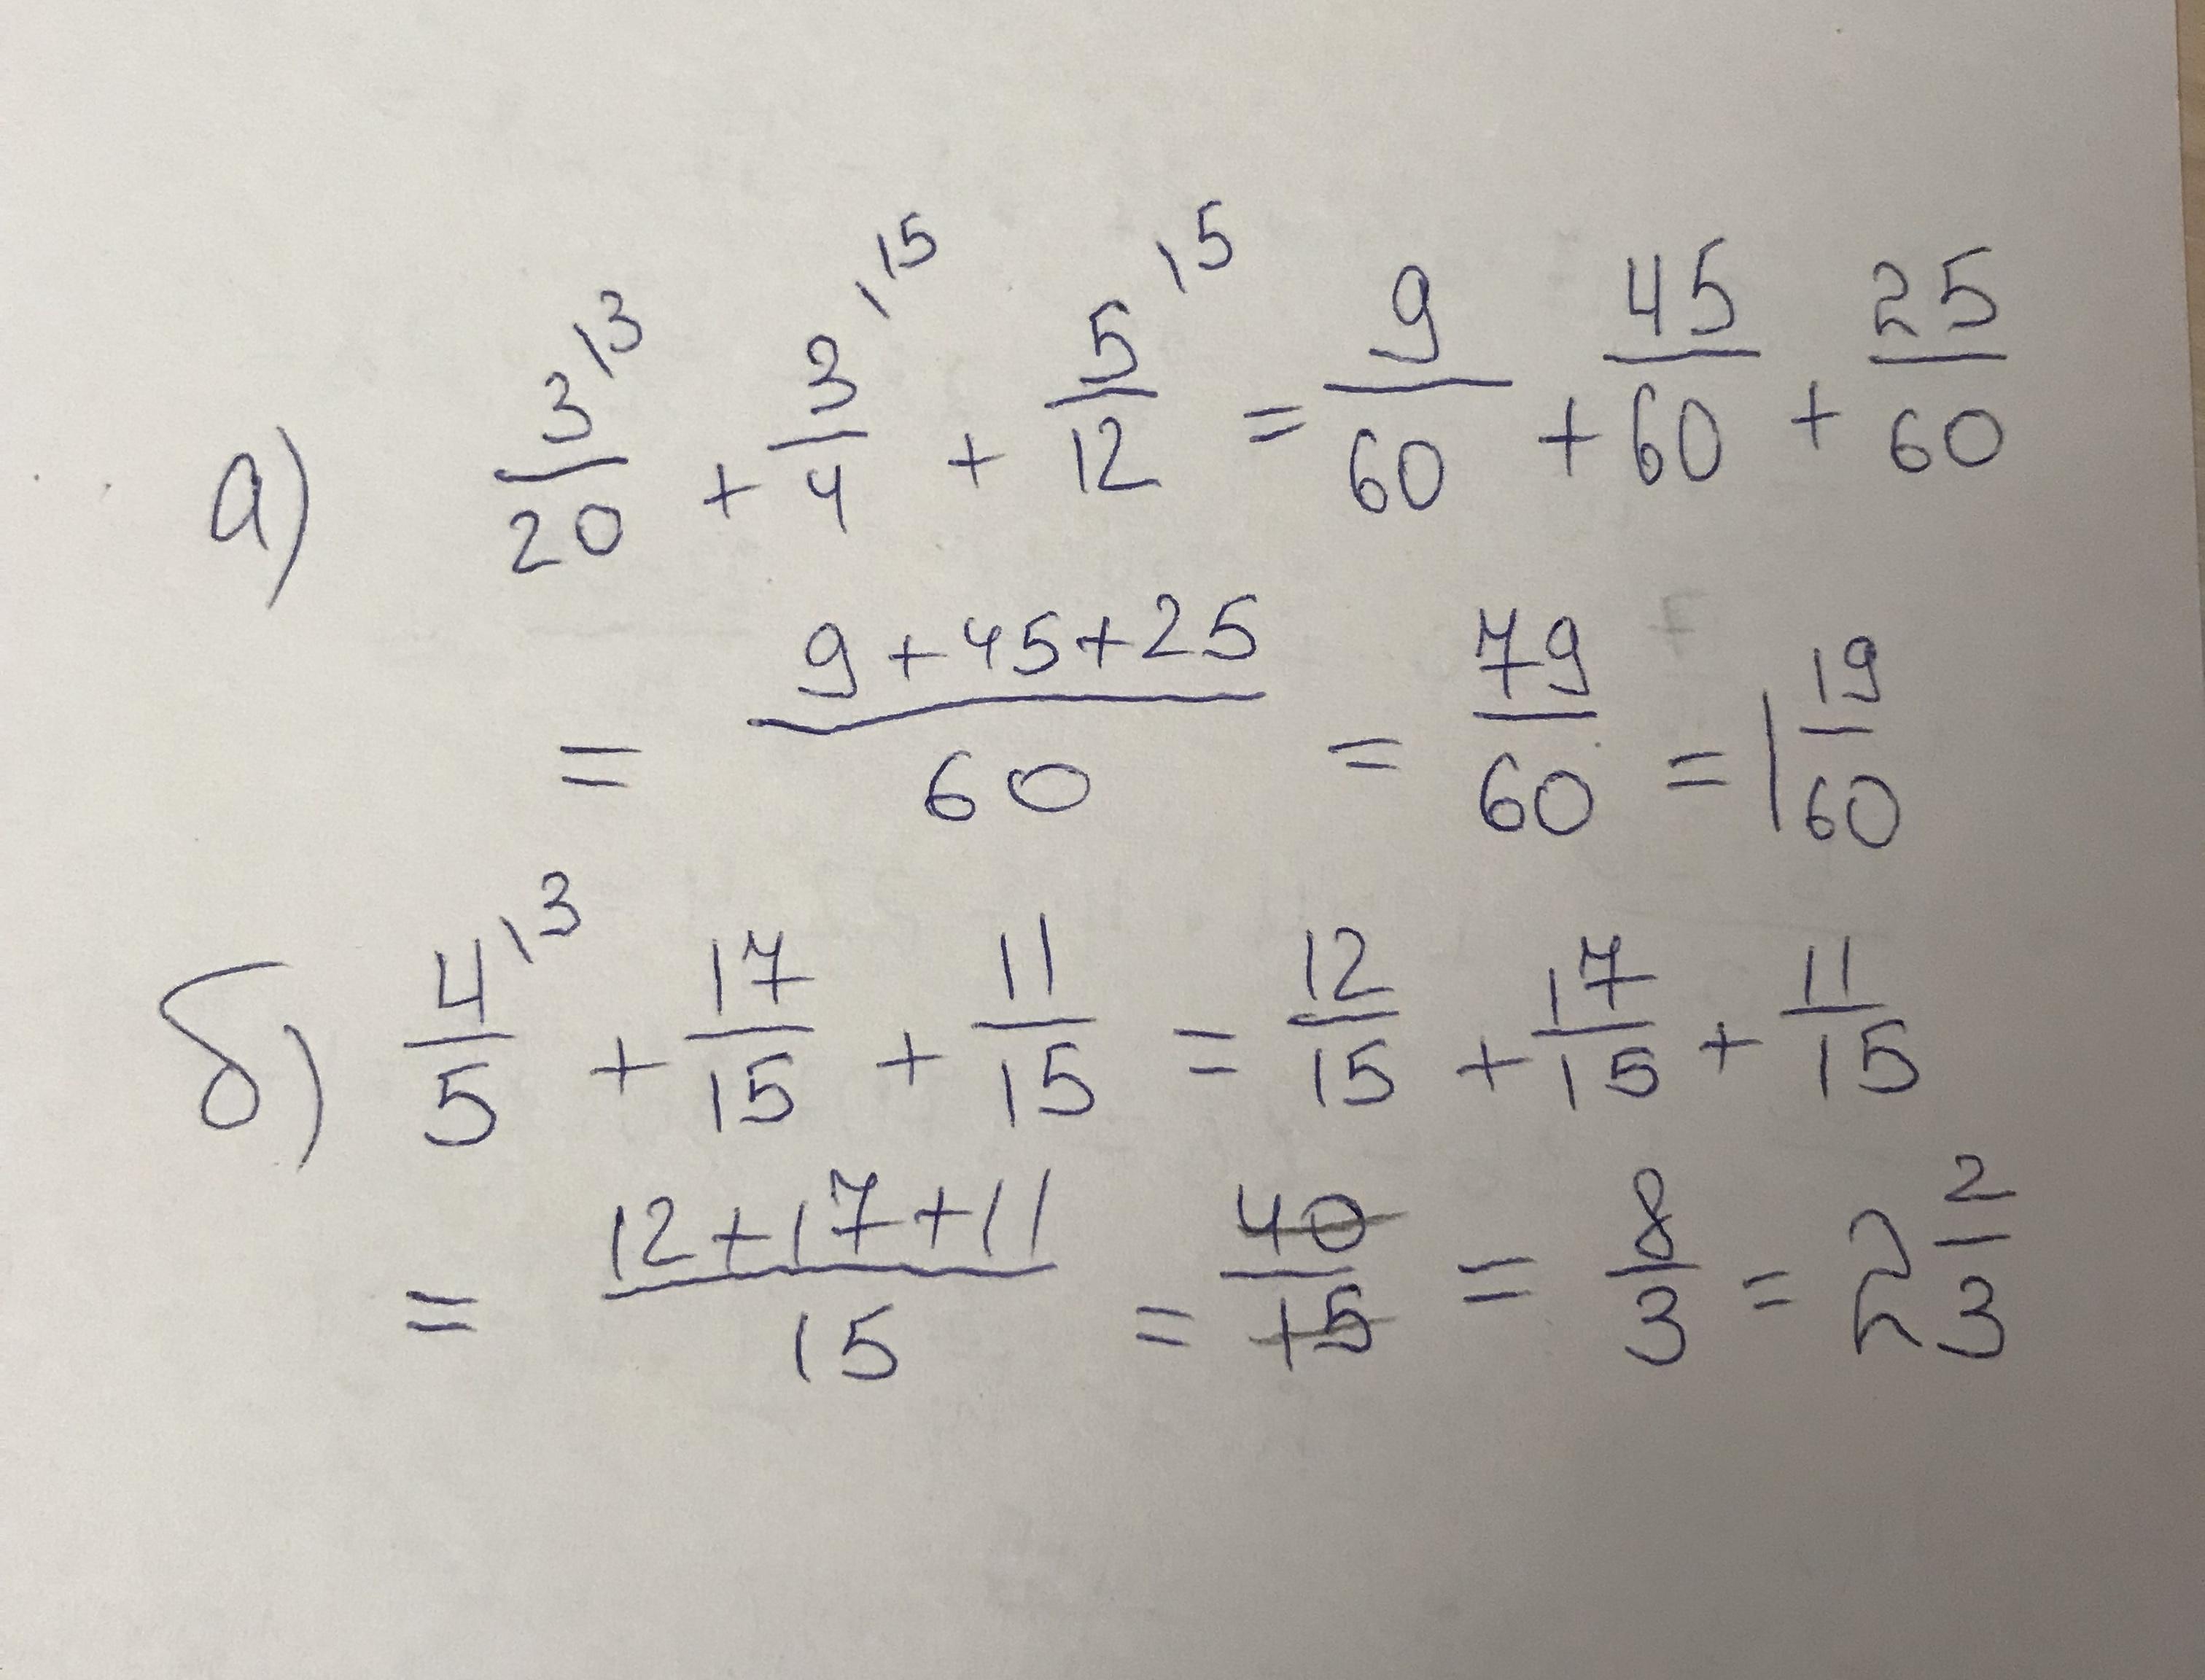 а) 3\3/20 + 3\15/4 + 5\5/12 = 9/60 + 45/60 + 25/60
= 9+45+25/60 = 79/60 = 1 19/60
б) 4\3/5 + 17/15 + 11/15 = 12/15 + 17/15 + 11/15
= 12+17+11/15 = 40/15 = 8/3 = 2 2/3